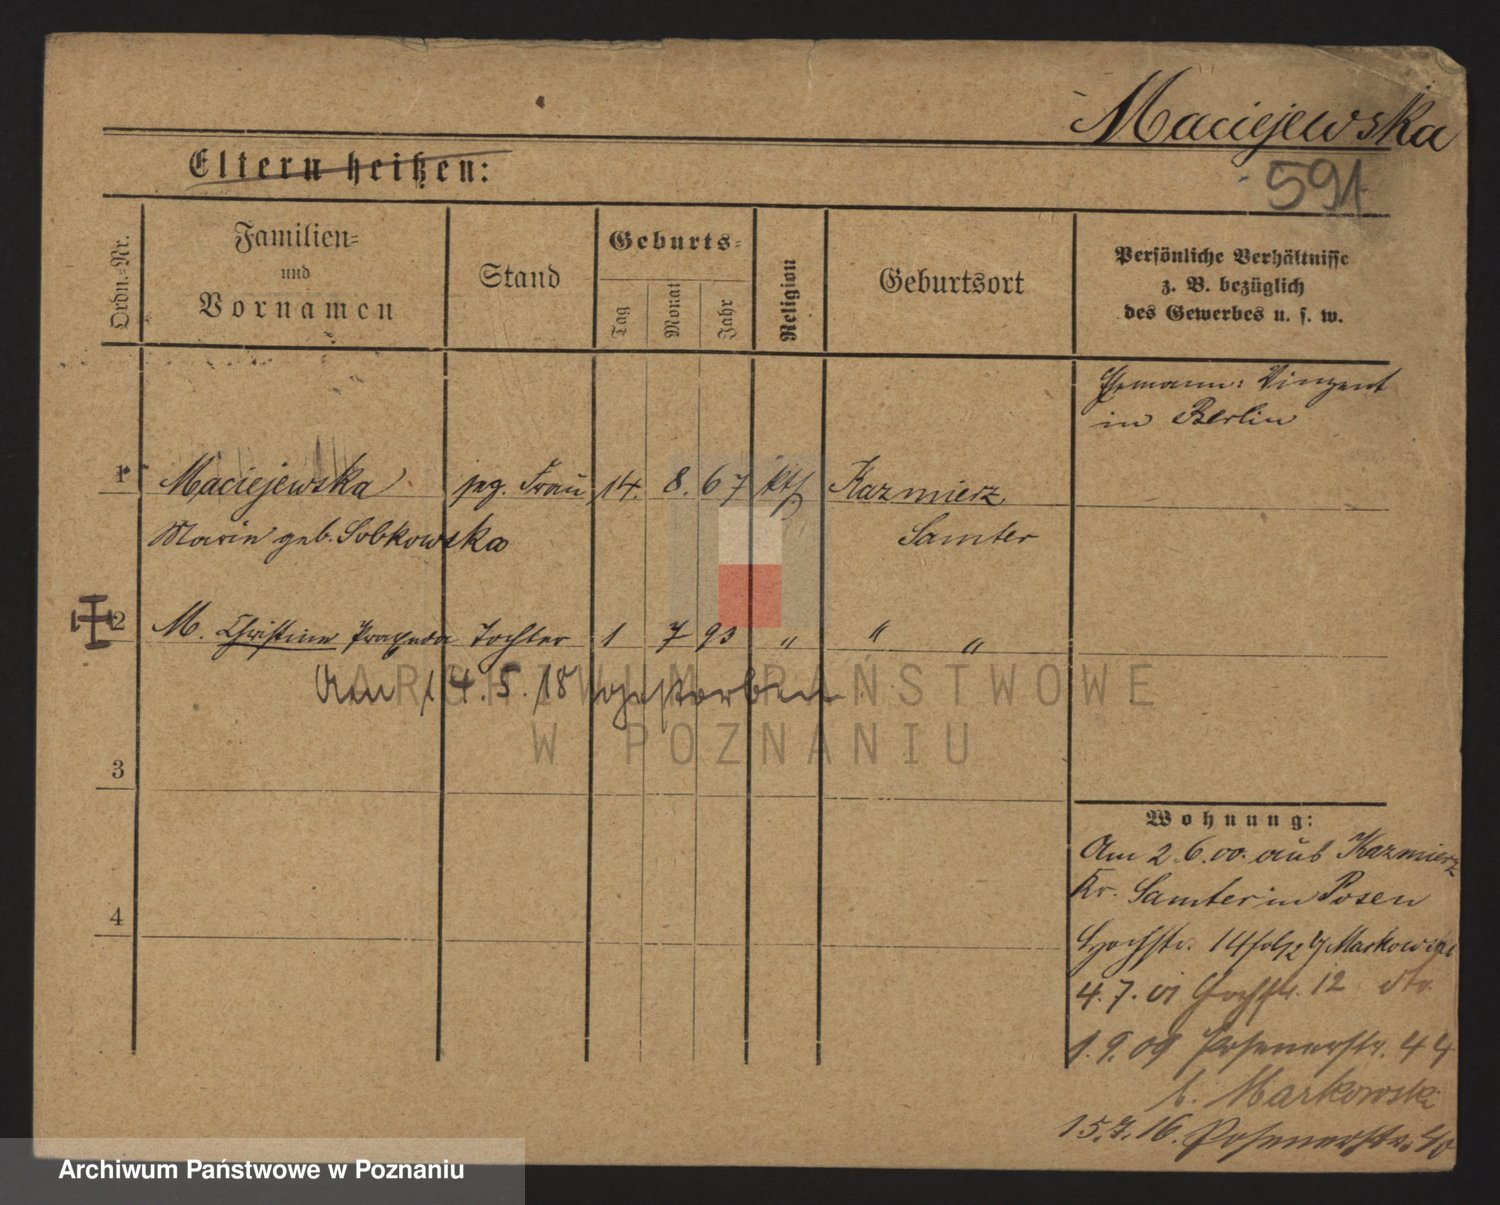 Maciejewska
591
Eltern heißen:
Ordn.=Nr.
Familien=
und
Vornamen
Stand
Geburts=
Tag
Monat
Jahr
Religion
Geburtsort
Persönliche Verhältnisse
z. B. bezüglich
des Gewerbes u. s. w.
Ehemann: Vinzent
in Berlin
1 Maciejewska Frau 14. 8. 67 kth. Kazmierz
Marie geb. Sobkowska Samter
2 M. Christine Praxeda Tochter 1 7 93 " " "
Am 14.5.18 gestorben.
3
4
Wohnung:
Am 2.6.00. aus Kazmierz
Kr. Samter in Posen
Hochstr. 14 b/ Markowski
4.7.01 Hochstr. 12 dto.
1.9.09 Posenerstr. 44
b. Markowski
15.7.16. Posenerstr. 40
ARCHIWUM PAŃSTWOWE
W POZNANIU
Archiwum Państwowe w Poznaniu